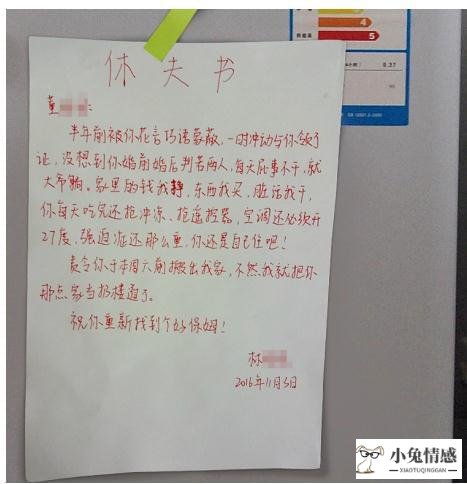 4
5
休夫书
董
半年前被你花言巧语蒙蔽,一时冲动与你领了
证,没想到你婚前婚后判若两人,每天屁事不干,就
大爷躺。家里的钱我挣,东西我买,脏活我干,
你每天吃完还抢冲凉、抢遥控器,空调还必须开
27度,强迫症还那么重,你还是自己住吧!
责令你于本周六前搬出我家,不然我就把你
那点家当扔楼道了。
祝你重新找到个好保姆!
林
2016年11月3日
小兔情感
XIAOTUQINGGAN